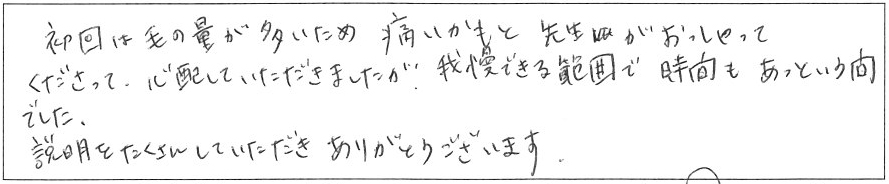 初回は毛の量が多いため 痛いかもと 先生がおっしゃって
くださって、心配していただきましたが、我慢できる範囲で 時間も あっという間
でした、
説明をたくさんしていただき ありがとうございます.